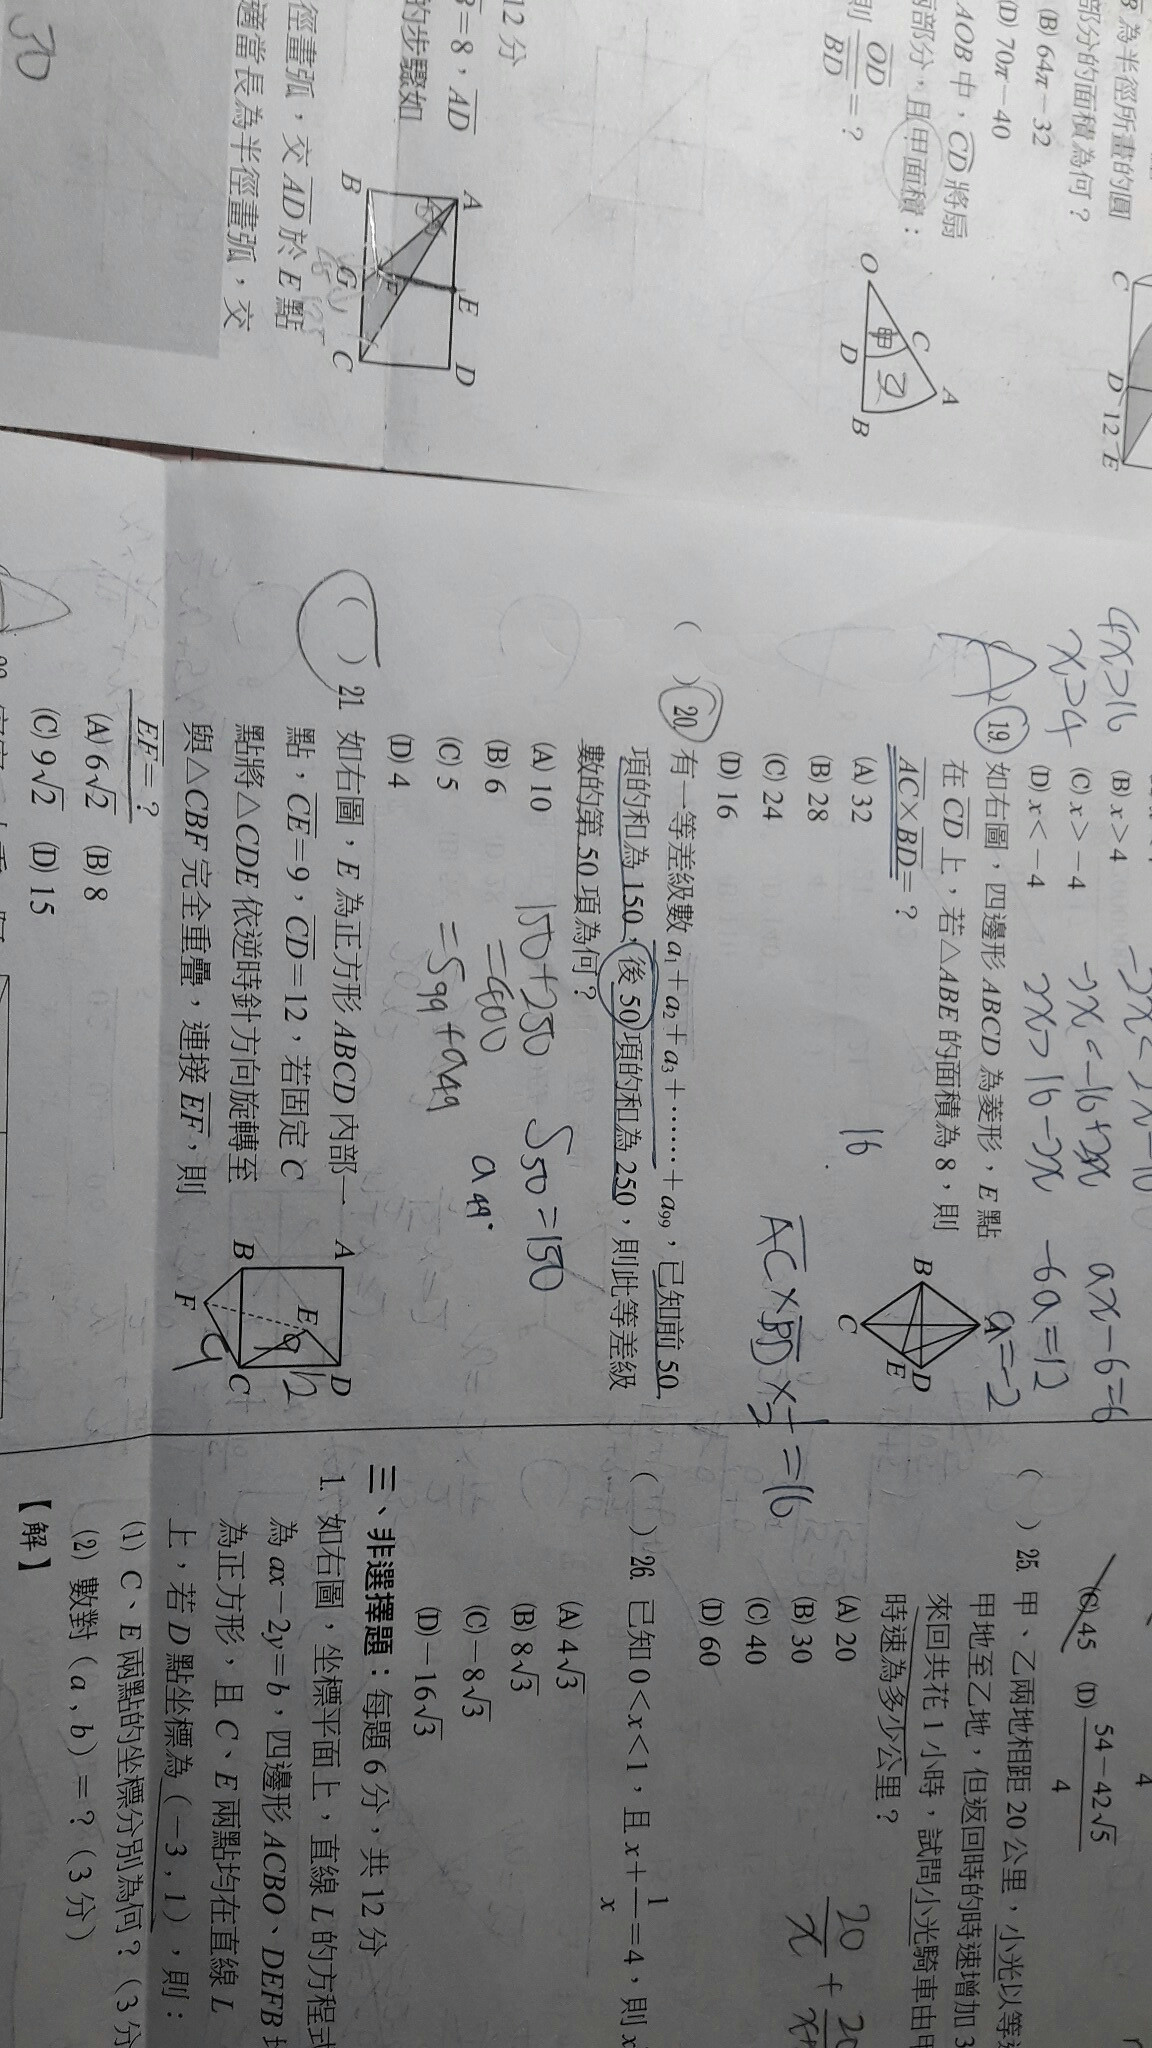 B為半徑所畫的圓
部分的面積為何？
(B) 64π－32
(D) 70π－40
AOB 中，CD 將扇
兩部分，且甲面積：
則 OD/BD＝？
O
C
A
甲
乙
D
B
C
D
12
E
12 分
＝8，AD
的步驟如
徑畫弧，交 AD 於 E 點
適當長為半徑畫弧，交
A
E
D
B
G
F
C
30
4x>16
x>4
(B) x＞4
(C) x＞－4
(D) x＜－4
-2x<-16+2x
2x>16-2x
ax-6=6
-6a=12
a=-2
19. 如右圖，四邊形 ABCD 為菱形，E 點
在 CD 上，若△ABE 的面積為 8，則
AC×BD＝？
(A) 32
(B) 28
(C) 24
(D) 16
B
C
D
E
16
AC×BD×1/2=16
(　) 20. 有一等差級數 a₁＋a₂＋a₃＋……＋a₉₉，已知前 50
項的和為 150，後 50 項的和為 250，則此等差級
數的第 50 項為何？
(A) 10
(B) 6
(C) 5
(D) 4
150+250
=400
=S99+a49
S50=150
a49.
(　) 21. 如右圖，E 為正方形 ABCD 內部一
點，CE＝9，CD＝12，若固定 C
點將△CDE 依逆時針方向旋轉至
與△CBF 完全重疊，連接 EF，則
EF＝？
(A) 6√2　(B) 8
(C) 9√2　(D) 15
A
D
E
B
C
F
9
12
9
(C) 45　(D) (54－42√5)/4
4
(　) 25. 甲、乙兩地相距 20 公里，小光以等
甲地至乙地，但返回時的時速增加 3
來回共花 1 小時，試問小光騎車由甲
時速為多少公里？
(A) 20
(B) 30
(C) 40
(D) 60
20/x +
(　) 26. 已知 0＜x＜1，且 x＋1/x＝4，則 x
(A) 4√3
(B) 8√3
(C) －8√3
(D) －16√3
三、非選擇題：每題 6 分，共 12 分
1. 如右圖，坐標平面上，直線 L 的方程式
為 ax－2y＝b，四邊形 ACBO、DEFB
為正方形，且 C、E 兩點均在直線 L
上，若 D 點坐標為（－3，1），則：
(1) C、E 兩點的坐標分別為何？（3 分
(2) 數對（a，b）＝？（3 分）
【解】